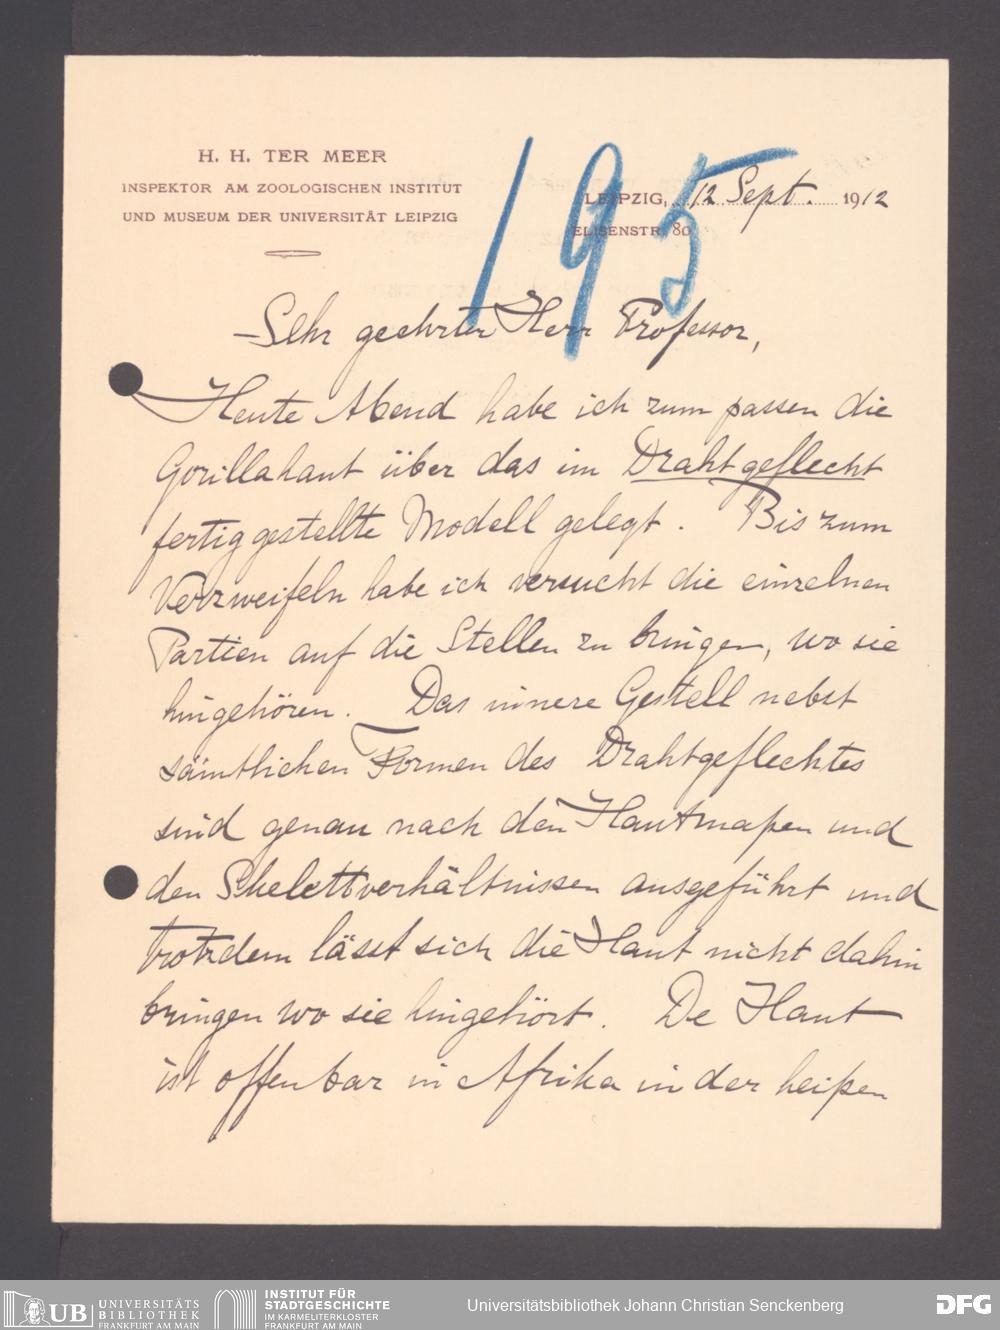 H. H. TER MEER
INSPEKTOR AM ZOOLOGISCHEN INSTITUT
UND MUSEUM DER UNIVERSITÄT LEIPZIG
195
LEIPZIG, 12 Sept. 1912
ELISENSTR. 80
Sehr geehrter Herr Professor,
Heute Abend habe ich zum passen die
Gorillahaut über das im Drahtgeflecht
fertiggestellte Modell gelegt. Bis zum
Verzweifeln habe ich versucht die einzelnen
Partien auf die Stellen zu bringen, wo sie
hingehören. Das innere Gestell nebst
sämtlichen Formen des Drahtgeflechtes
sind genau nach den Hautmaßen und
den Skelettverhältnissen ausgeführt und
trotzdem lässt sich die Haut nicht dahin
bringen wo sie hingehört. De Haut
ist offenbar in Afrika in der heißen
UB UNIVERSITÄTS
BIBLIOTHEK
FRANKFURT AM MAIN
INSTITUT FÜR
STADTGESCHICHTE
IM KARMELITERKLOSTER
FRANKFURT AM MAIN
Universitätsbibliothek Johann Christian Senckenberg
DFG